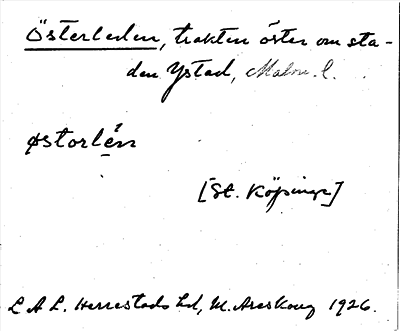 Österleden, trakten öster om sta-
den Ystad, Malm. l.
østorlén
[St. Köpinge]
L A L. Herrestads hd, M. Areskoug 1926.